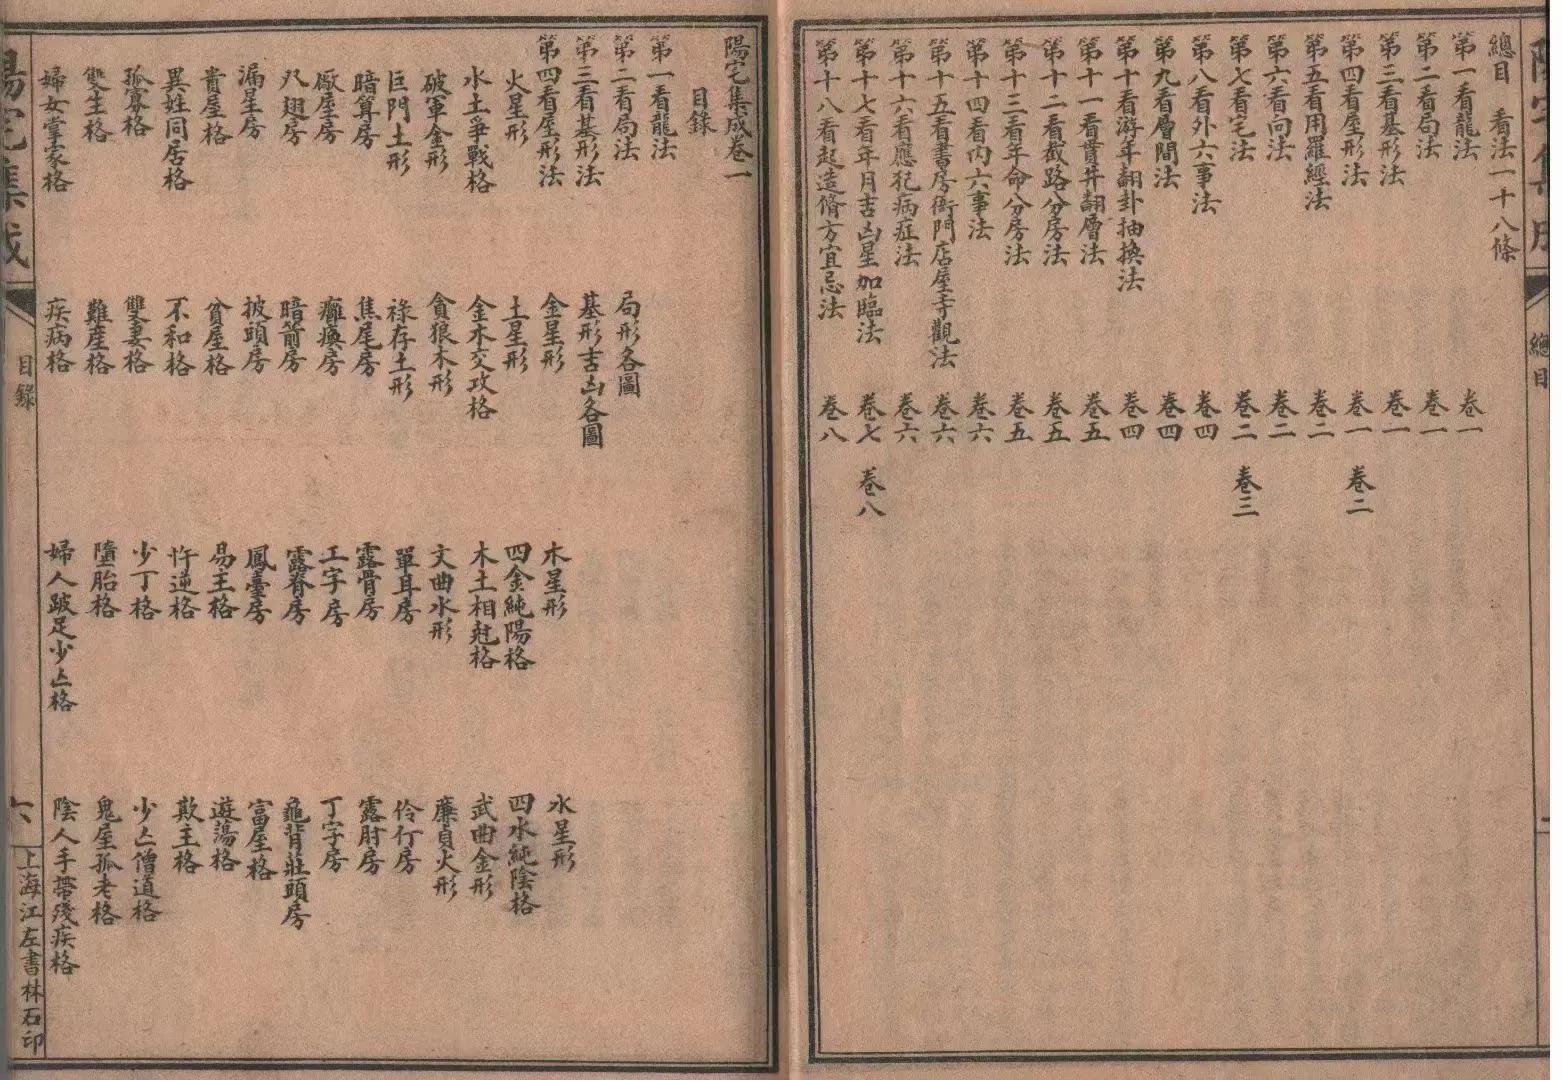 總目 看法一十八條
第一看龍法 卷一
第二看局法 卷一
第三看基形法 卷一
第四看屋形法 卷一 卷二
第五看用羅經法 卷二
第六看向法 卷二
第七看宅法 卷二 卷三
第八看外六事法 卷四
第九看層間法 卷四
第十看游年翻卦抽換法 卷四
第十一看貫井翻層法 卷五
第十二看截路分房法 卷五
第十三看年命分房法 卷五
第十四看內六事法 卷六
第十五看書房衙門店屋寺觀法 卷六
第十六看應犯病症法 卷六
第十七看年月吉凶星加臨法 卷七 卷八
第十八看起造脩方宜忌法 卷八
總目
陽宅集成卷一
目錄
第一看龍法
第二看局法 局形各圖
第三看基形法 基形吉凶各圖
第四看屋形法 金星形 木星形 水星形
火星形 土星形 四金純陽格 四水純陰格
水土爭戰格 金木交攻格 木土相尅格 武曲金形
破軍金形 貪狼木形 文曲水形 廉貞火形
巨門土形 祿存土形 單耳房 伶仃房
暗算房 焦尾房 露骨房 露肘房
厫座房 癱瘓房 工字房 丁字房
八翅房 暗箭房 露脊房 龜背莊頭房
漏星房 披頭房 鳳臺房 富屋格
貴屋格 貧屋格 易主格 遊蕩格
異姓同居格 不和格 忤逆格 欺主格
孤寡格 雙妻格 少丁格 少亡僧道格
雙生格 難產格 墮胎格 鬼屋孤老格
婦女掌家格 疾病格 婦人跛足少亡格 陰人手帶殘疾格
陽宅集成
目錄
六
上海江左書林石印